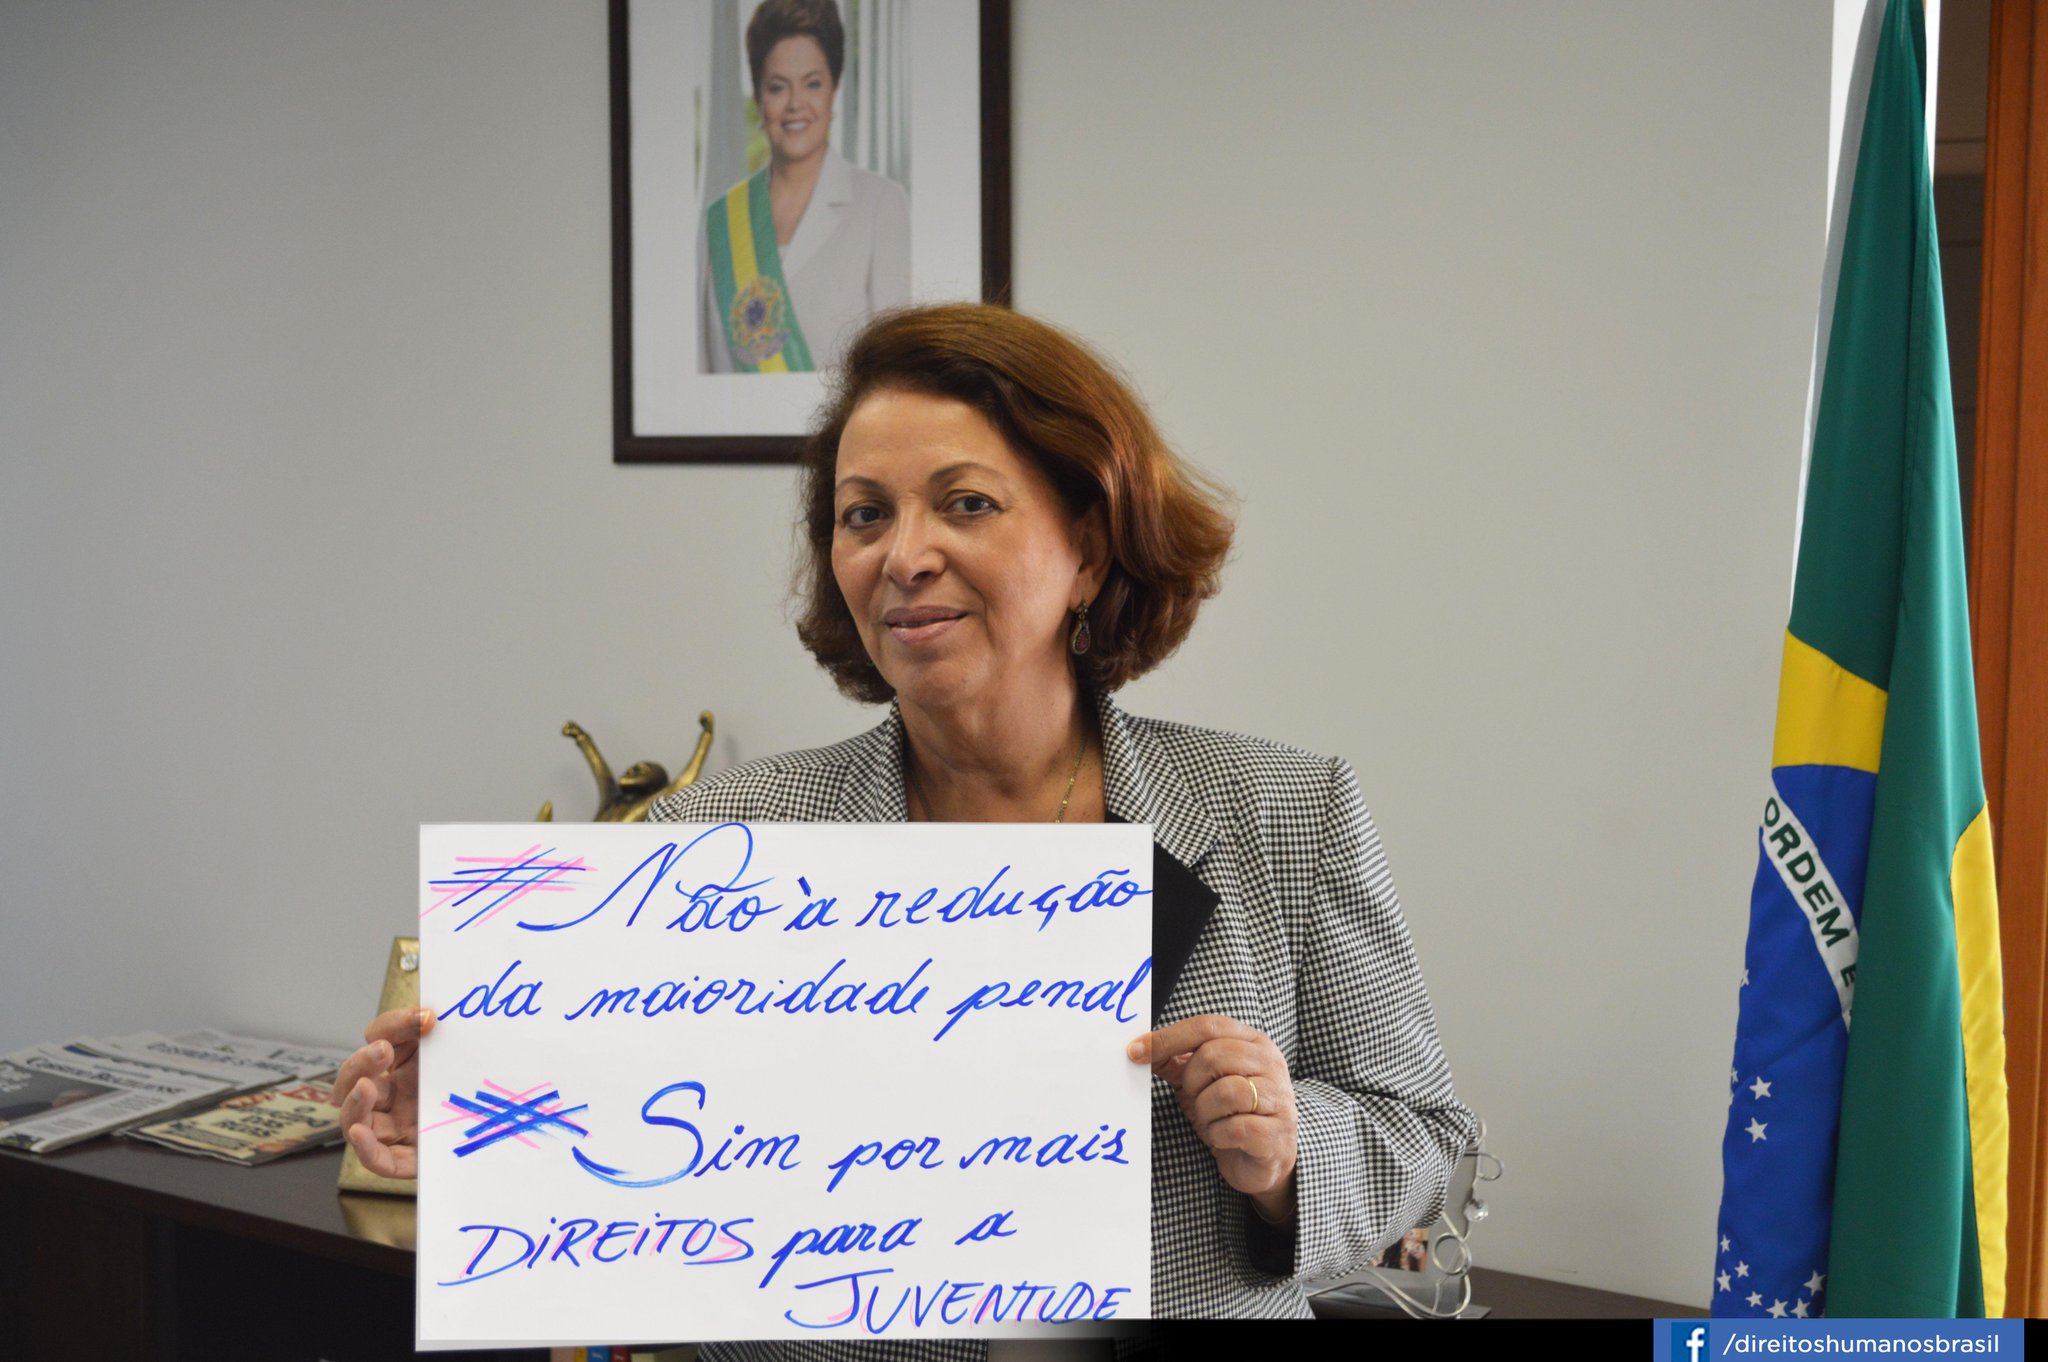 # Não à redução
da maioridade penal
# Sim por mais
DIREITOS para a
JUVENTUDE
ORDEM E
CORREIO BRAZILIENSE
/direitoshumanosbrasil